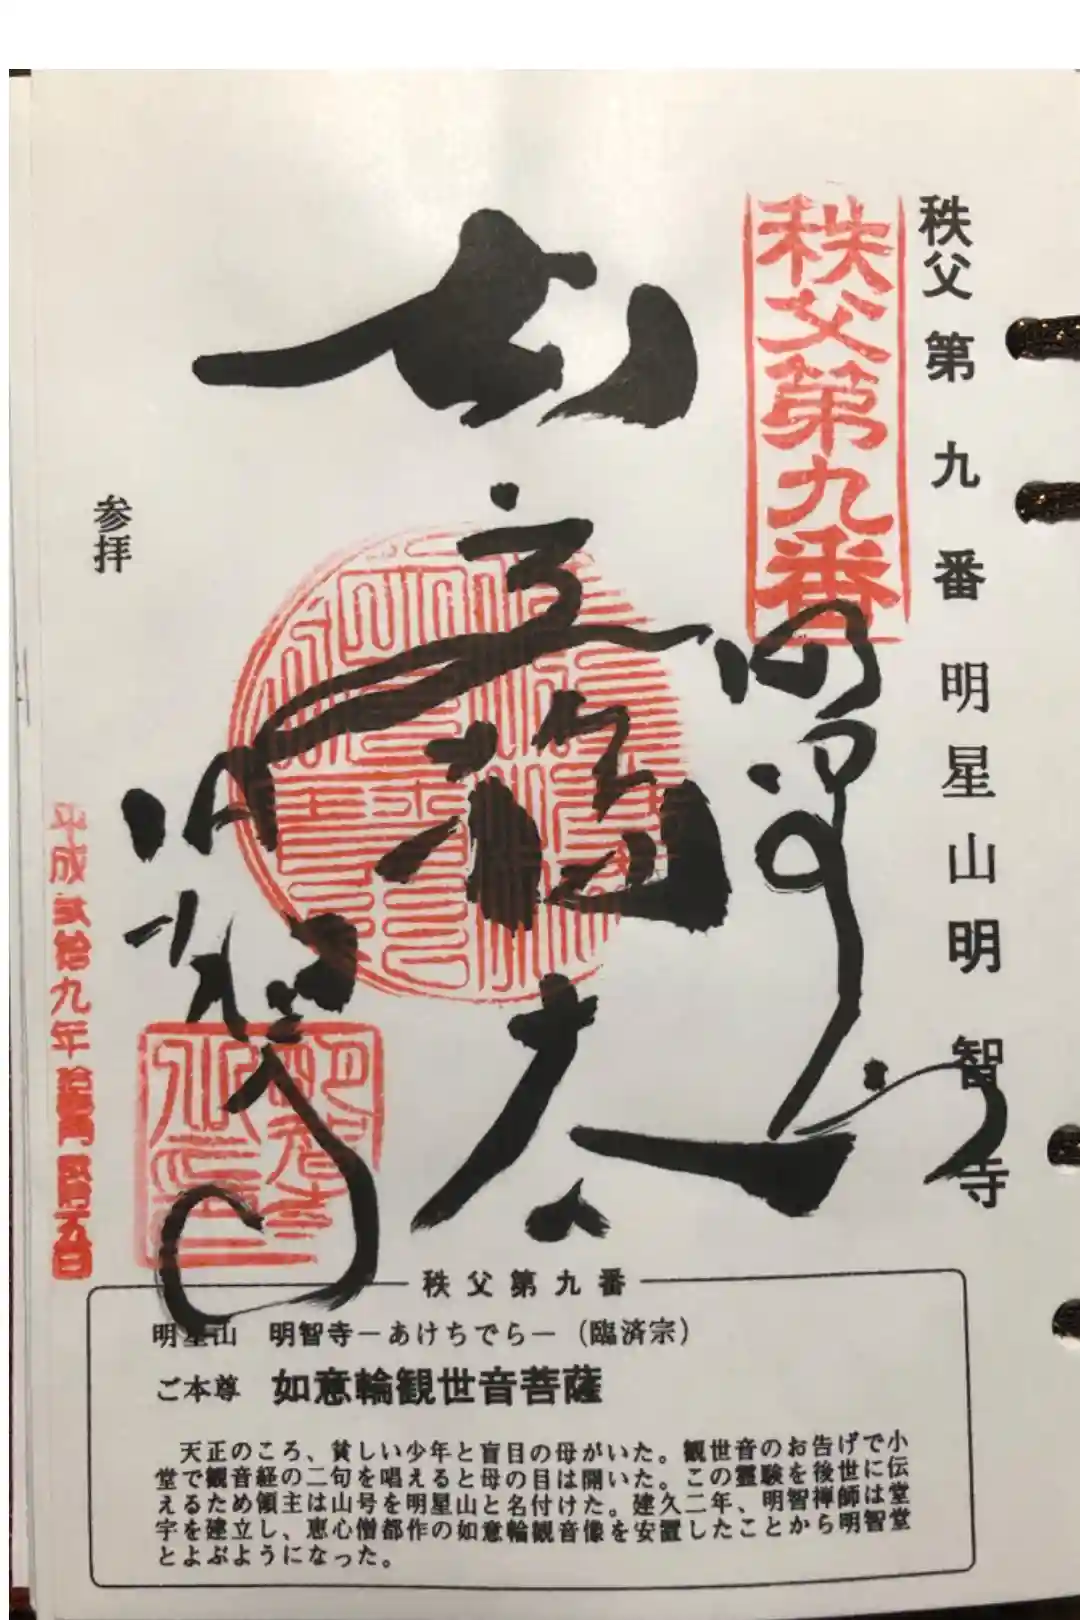 秩父第九番明星山明智寺
秩父第九番
明星山
如意輪大
明智寺
参拝
平成弐拾九年
秩父第九番
明星山 明智寺－あけちでら－（臨済宗）
ご本尊 如意輪観世音菩薩
天正のころ、貧しい少年と盲目の母がいた。観世音のお告げで小
堂で観音経の二句を唱えると母の目は開いた。この霊験を後世に伝
えるため領主は山号を明星山と名付けた。建久二年、明智禅師は堂
宇を建立し、恵心僧都作の如意輪観音像を安置したことから明智堂
とよぶようになった。